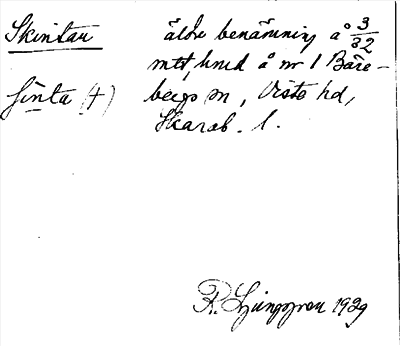 Skintan äldre benämning å 3/32
mtl, hmd å nr 1 Bäre-
finta (+) bergs sn, Viste hd,
Skarab. l.
R. Ljunggren 1929